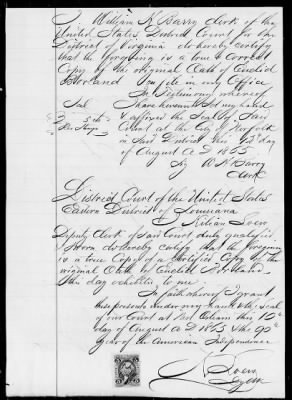 I William K Barry Clerk of the
United States District Court for the
District of Virginia do hereby certify
that the foregoing is a true & correct
Copy of the original Oath of
Borland on file in my Office
In Testimony whereof
Seal I have hereunto set my hand
& affixed the Seal of Said
Court at the City of Norfolk
in Said District this day
of August A D 1865
W K Barry
Clerk
District Court of the United States
Eastern District of Louisiana
I Loew
Deputy Clerk of Said Court duly qualified
& Sworn do hereby certify that the foregoing
is a true Copy of a Certified Copy of the
original Oath of Borland
this day exhibited to me
In faith whereof I grant
these presents under my hand & the seal
of our Court at New Orleans this 12th
day of August A D 1865 & the 90th
Year of the American Independence
Loew